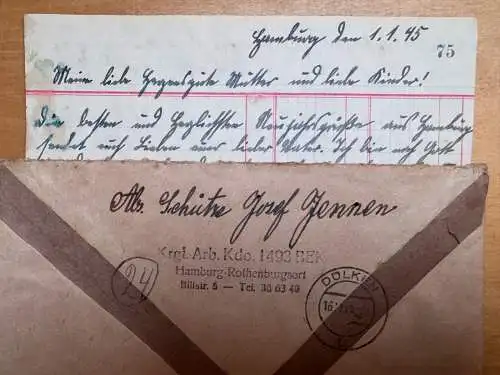 Hamburg den 1.1.45
75
Meine liebe herzensgute Mutter und liebe Kinder!
Die besten und herzlichsten Neujahrsgrüße aus Hamburg
sendet euch Lieben euer lieber Vater. Ich bin noch Gott
Abs. Schütze Josef Jennen
Krgf. Arb. Kdo. 1493 BEK
Hamburg-Rothenburgsort
Billstr. 5 — Tel. 38 63 49
24
DÜLKEN